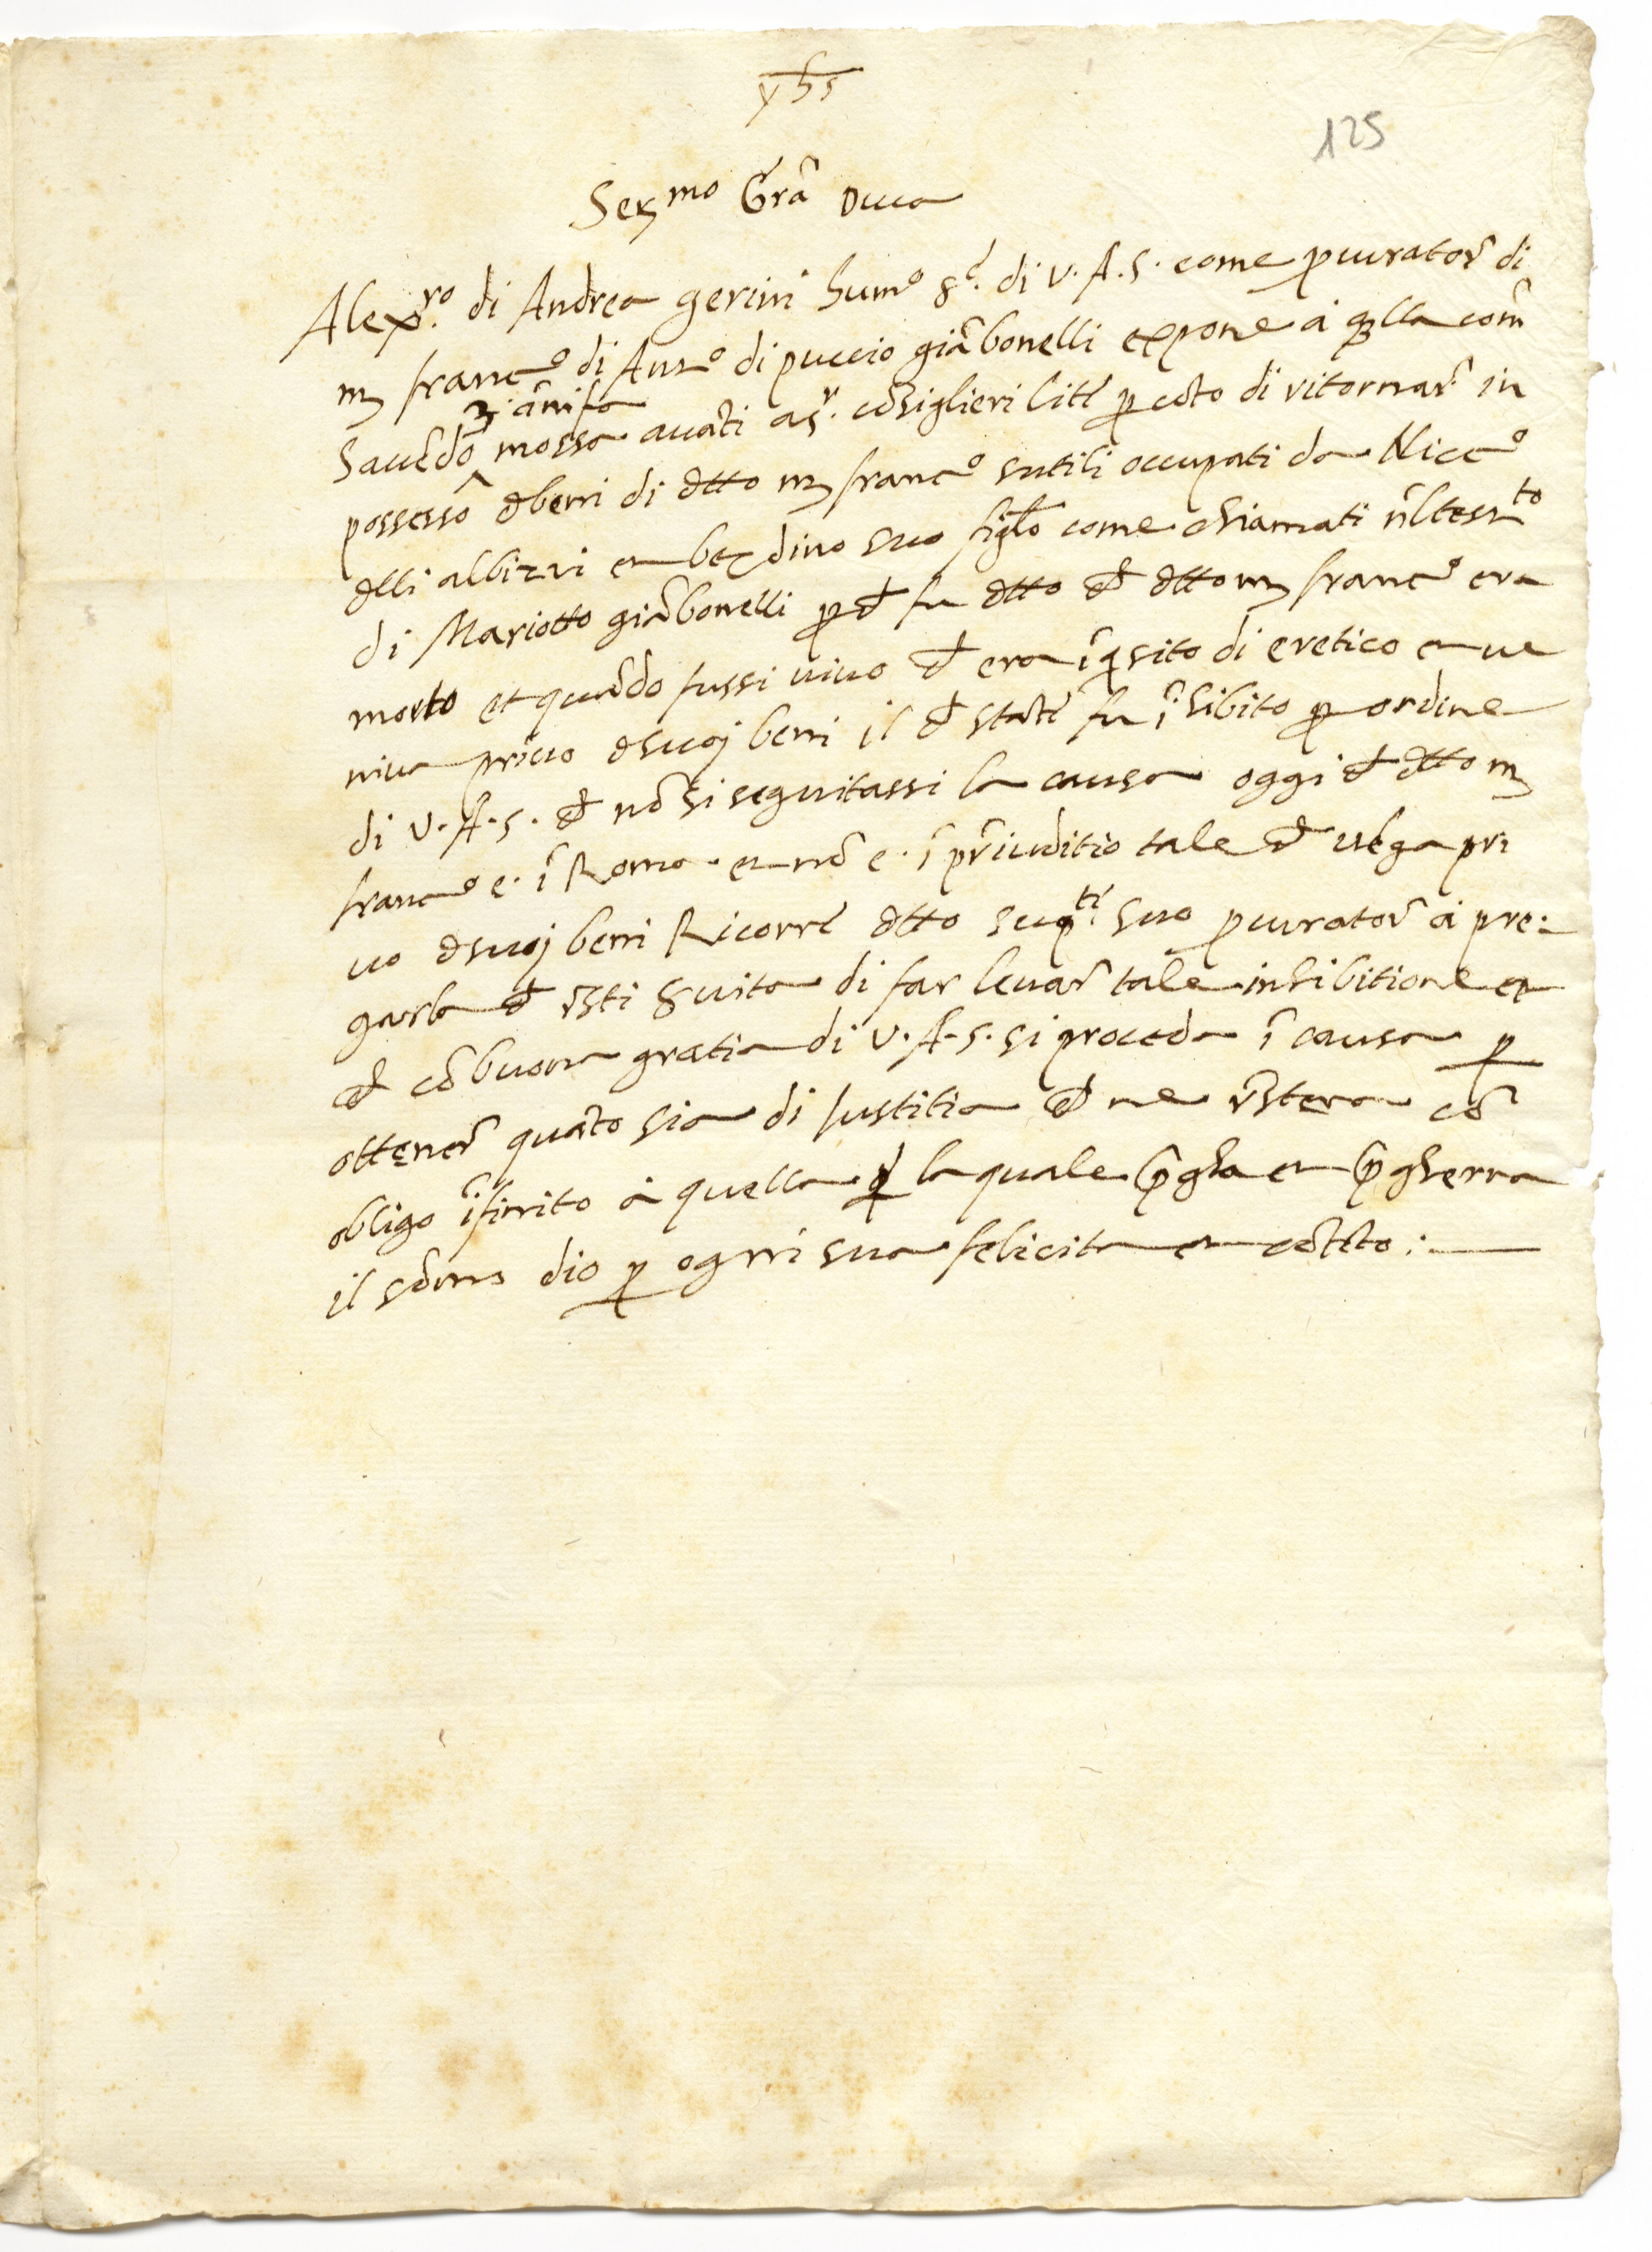 yhs
125
Ser.mo Grã Duca
Alex.ro di Andrea gerini humo s.e di V. A. S. come pcurator di
m franc.o di Ant.o di puccio giãbonelli expone à qlla com
3 ãni fa
havẽdo mossa avãti a s.r cõsiglieri lite p cõto di ritornar in
possesso d beni di dtto m franc.o sutili occupati da Nicc.o
dlli albizzi et berdino suo figlo come chiamati nel test.to
di Mariotto giãbonelli p ch fu dtto ch dtto m franc.o era
morto et quãdo fussi vivo ch era ĩqsito di eretico et ve
niva privo d suoj beni il ch stãte fu ĩhibito p ordine
di V. A. S. ch nõ si seguitassi la causa oggi ch dtto m
franc.o e. ĩ Roma. et nõ e. ĩ preiuditio tale ch vẽga pri
vo d suoj beni Ricorre dtto supp.te suo pcurator à pre:
garla ch resti servita di far levar tale inhibitione et
ch cõ buona gratia di V. A. S. si proceda ĩ causa p
ottener quãto sia di Iustitia ch ne restera cõ
obligo ĩfinito à quella p la quale pgha et pgherra
il sõmo dio p ogni sua felicita et cõtẽto: